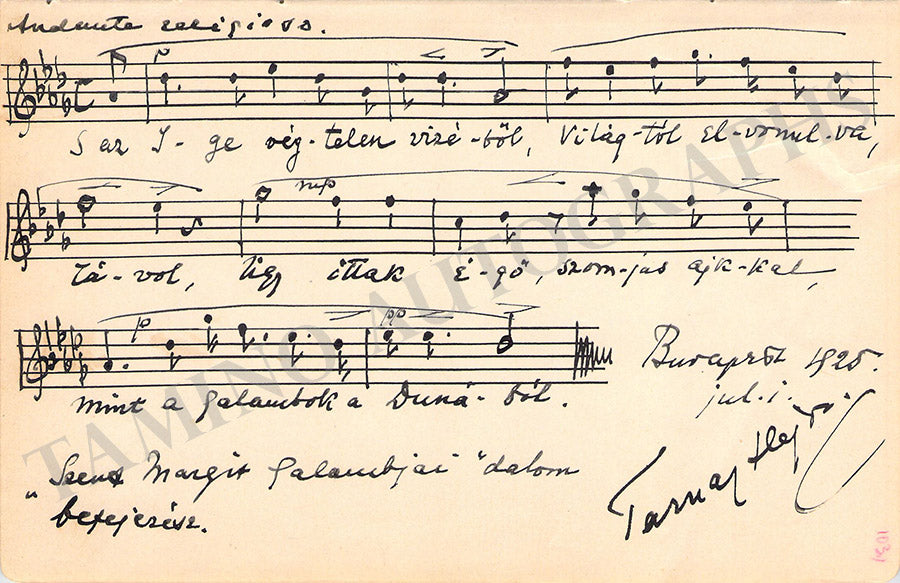 Andante religioso.
p
S az I-ge vég-telen vizé-ből, Világ-tól el-vonul-va,
mp
tá-vol, úgy ittak é-gő, szom-jas ajk-kal,
p pp
mint a galambok a Duná-ból.
Budapest 925.
jul. i.
„Szent Margit Galambjai" dalom
befejezése.
Tarnay
TAMINO AUTOGRAPHS